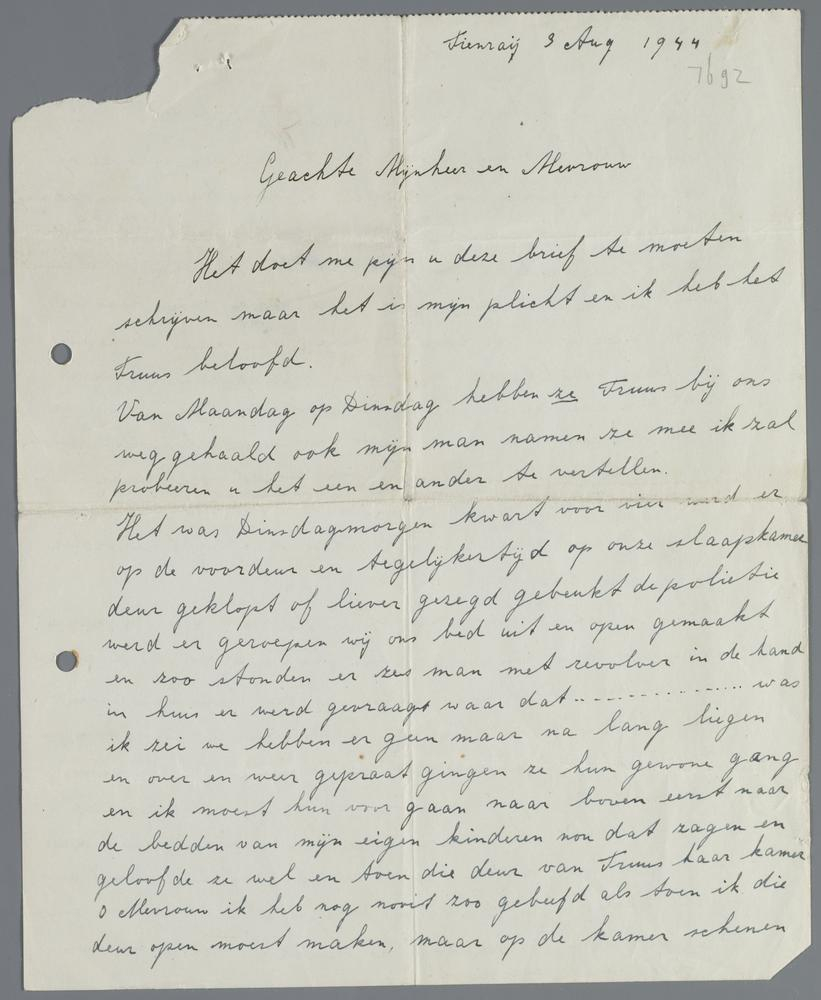 Tienraij 3 Aug 1944
7692
Geachte Mijnheer en Mevrouw
Het doet me pijn u deze brief te moeten
schrijven maar het is mijn plicht en ik heb het
Truus beloofd.
Van Maandag op Dinsdag hebben ze Truus bij ons
weggehaald ook mijn man namen ze mee ik zal
probeeren u het een en ander te vertellen.
Het was Dinsdagmorgen kwart voor vier werd er
op de voordeur en tegelijkertijd op onze slaapkamer
deur geklopt of liever gezegd gebeukt de polietie
werd er geroepen wij ons bed uit en open gemaakt
en zoo stonden er zes man met revolver in de hand
in huis er werd gevraagt waar dat ................ was
ik zei we hebben er geen maar na lang liegen
en over en weer gepraat gingen ze hun gewone gang
en ik moest hun voor gaan naar boven eerst naar
de bedden van mijn eigen kinderen nou dat zagen en
geloofde ze wel en toen die deur van Truus haar kamer
o Mevrouw ik heb nog nooit zoo gebeefd als toen ik die
deur open moest maken, maar op de kamer schenen